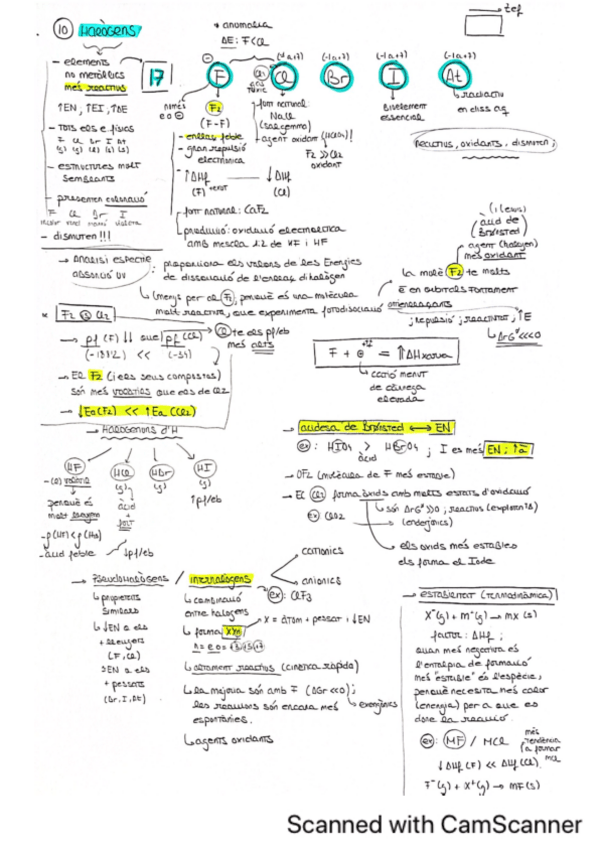 → Zef
10 Halògens
* anomalia
ΔE: F<Cl
- elements
no metàl·lics
més reactius
17
F
Cl
Br
I
At
(-1 a +7)
(-1 a +7)
(-1 a +7)
(-1 a +7)
↑EN, ↑EI, ↑ΔE
- Tots els e. físics
F Cl Br I At
(g) (g) (l) (s) (s)
- estructures molt
semblants
- presenten coloració
F Cl Br I
- dismuten!!!
només
e o ⊖
F2
(F-F)
- enllaç feble
- gran repulsió
electrònica
- ↑ΔHf
(F)
↓ΔHf
(Cl)
- font natural:
NaCl
(sal gemma)
- agent oxidant (HClO4)!
F2 >> Cl2
oxidant
Bivelement
essencial
radiactiu
Reactius, oxidants, dismuten;
- font natural: CaF2
- producció: oxidació electrolítica
amb mescla 1:2 de KF i HF
→ Anàlisi espectre
absorció UV
proporciona els valors de les Energies
de dissociació de l'enllaç dihalògen
(menys per el F2, perquè és una molècula
molt reactiva, que experimenta fotodissociació
(i lewis)
àcid de
Brönsted
agent (halogen)
més oxidant
la molè F2 té molts
ē en orbitals fortament
antienllaçants
; repulsió ; reactivitat, ↑E
ΔrG° <<0
* F2 Cl2
→ pf (F) ↓↓ que pf (Cl)
<<
Cl té els pf/eb
més alts
→ El F2 (i els seus compostos)
són més volàtils que els de Cl2
→ ↓Ea(F2) << ↑Ea (Cl2)
= ↑ΔHxarxa
catió menut
de càrrega
elevada
→ Halogenurs d'H
HF
HCl
HBr
HI
(g)
(g)
(g)
perquè és
molt
àcid
+
fort
↑pf/eb
- àcid feble
↓pf/eb
→ acidesa de Brönsted ↔ EN
ex: HIO4 > HBrO4 ; I es més EN; ↑ā
àcid
→ OF2 (molècules de F més estable)
→ El Cl2 forma àxids amb molts estats d'oxidació
ex ClO2
són ΔrG° >>0 ; reactius (explosius)
(endergònics)
els òxids més estables
els forma el Iode
→ Pseudohalògens / interhalògens
catiònics
aniònics
ex: ClF3
propietats
similars
↓EN a els
+ lleugers
(F, Cl)
>EN a els
+ pesats
(Br, I, At)
combinació
entre halògens
X = àtom + pesat, ↓EN
forma XYn
altament reactius (cinètica ràpida)
la majoria són amb F (ΔGr <<0);
les reaccions són encara més
espontànies.
exergònics
agents oxidants
→ estabilitat (termodinàmica)
X⁻(g) + m⁺(g) → mx (s)
factor: ΔHf ;
quan més negativa és
l'entalpia de formació
més "estable" és l'espècie,
perquè necessita més calor
(energia) per a que es
done la reacció.
ex: MF / MCl
més
tendència
a formar
MCl
↓ΔHf (F) << ΔHf (Cl)
F⁻(g) + X⁺(g) → MF(s)
Scanned with CamScanner